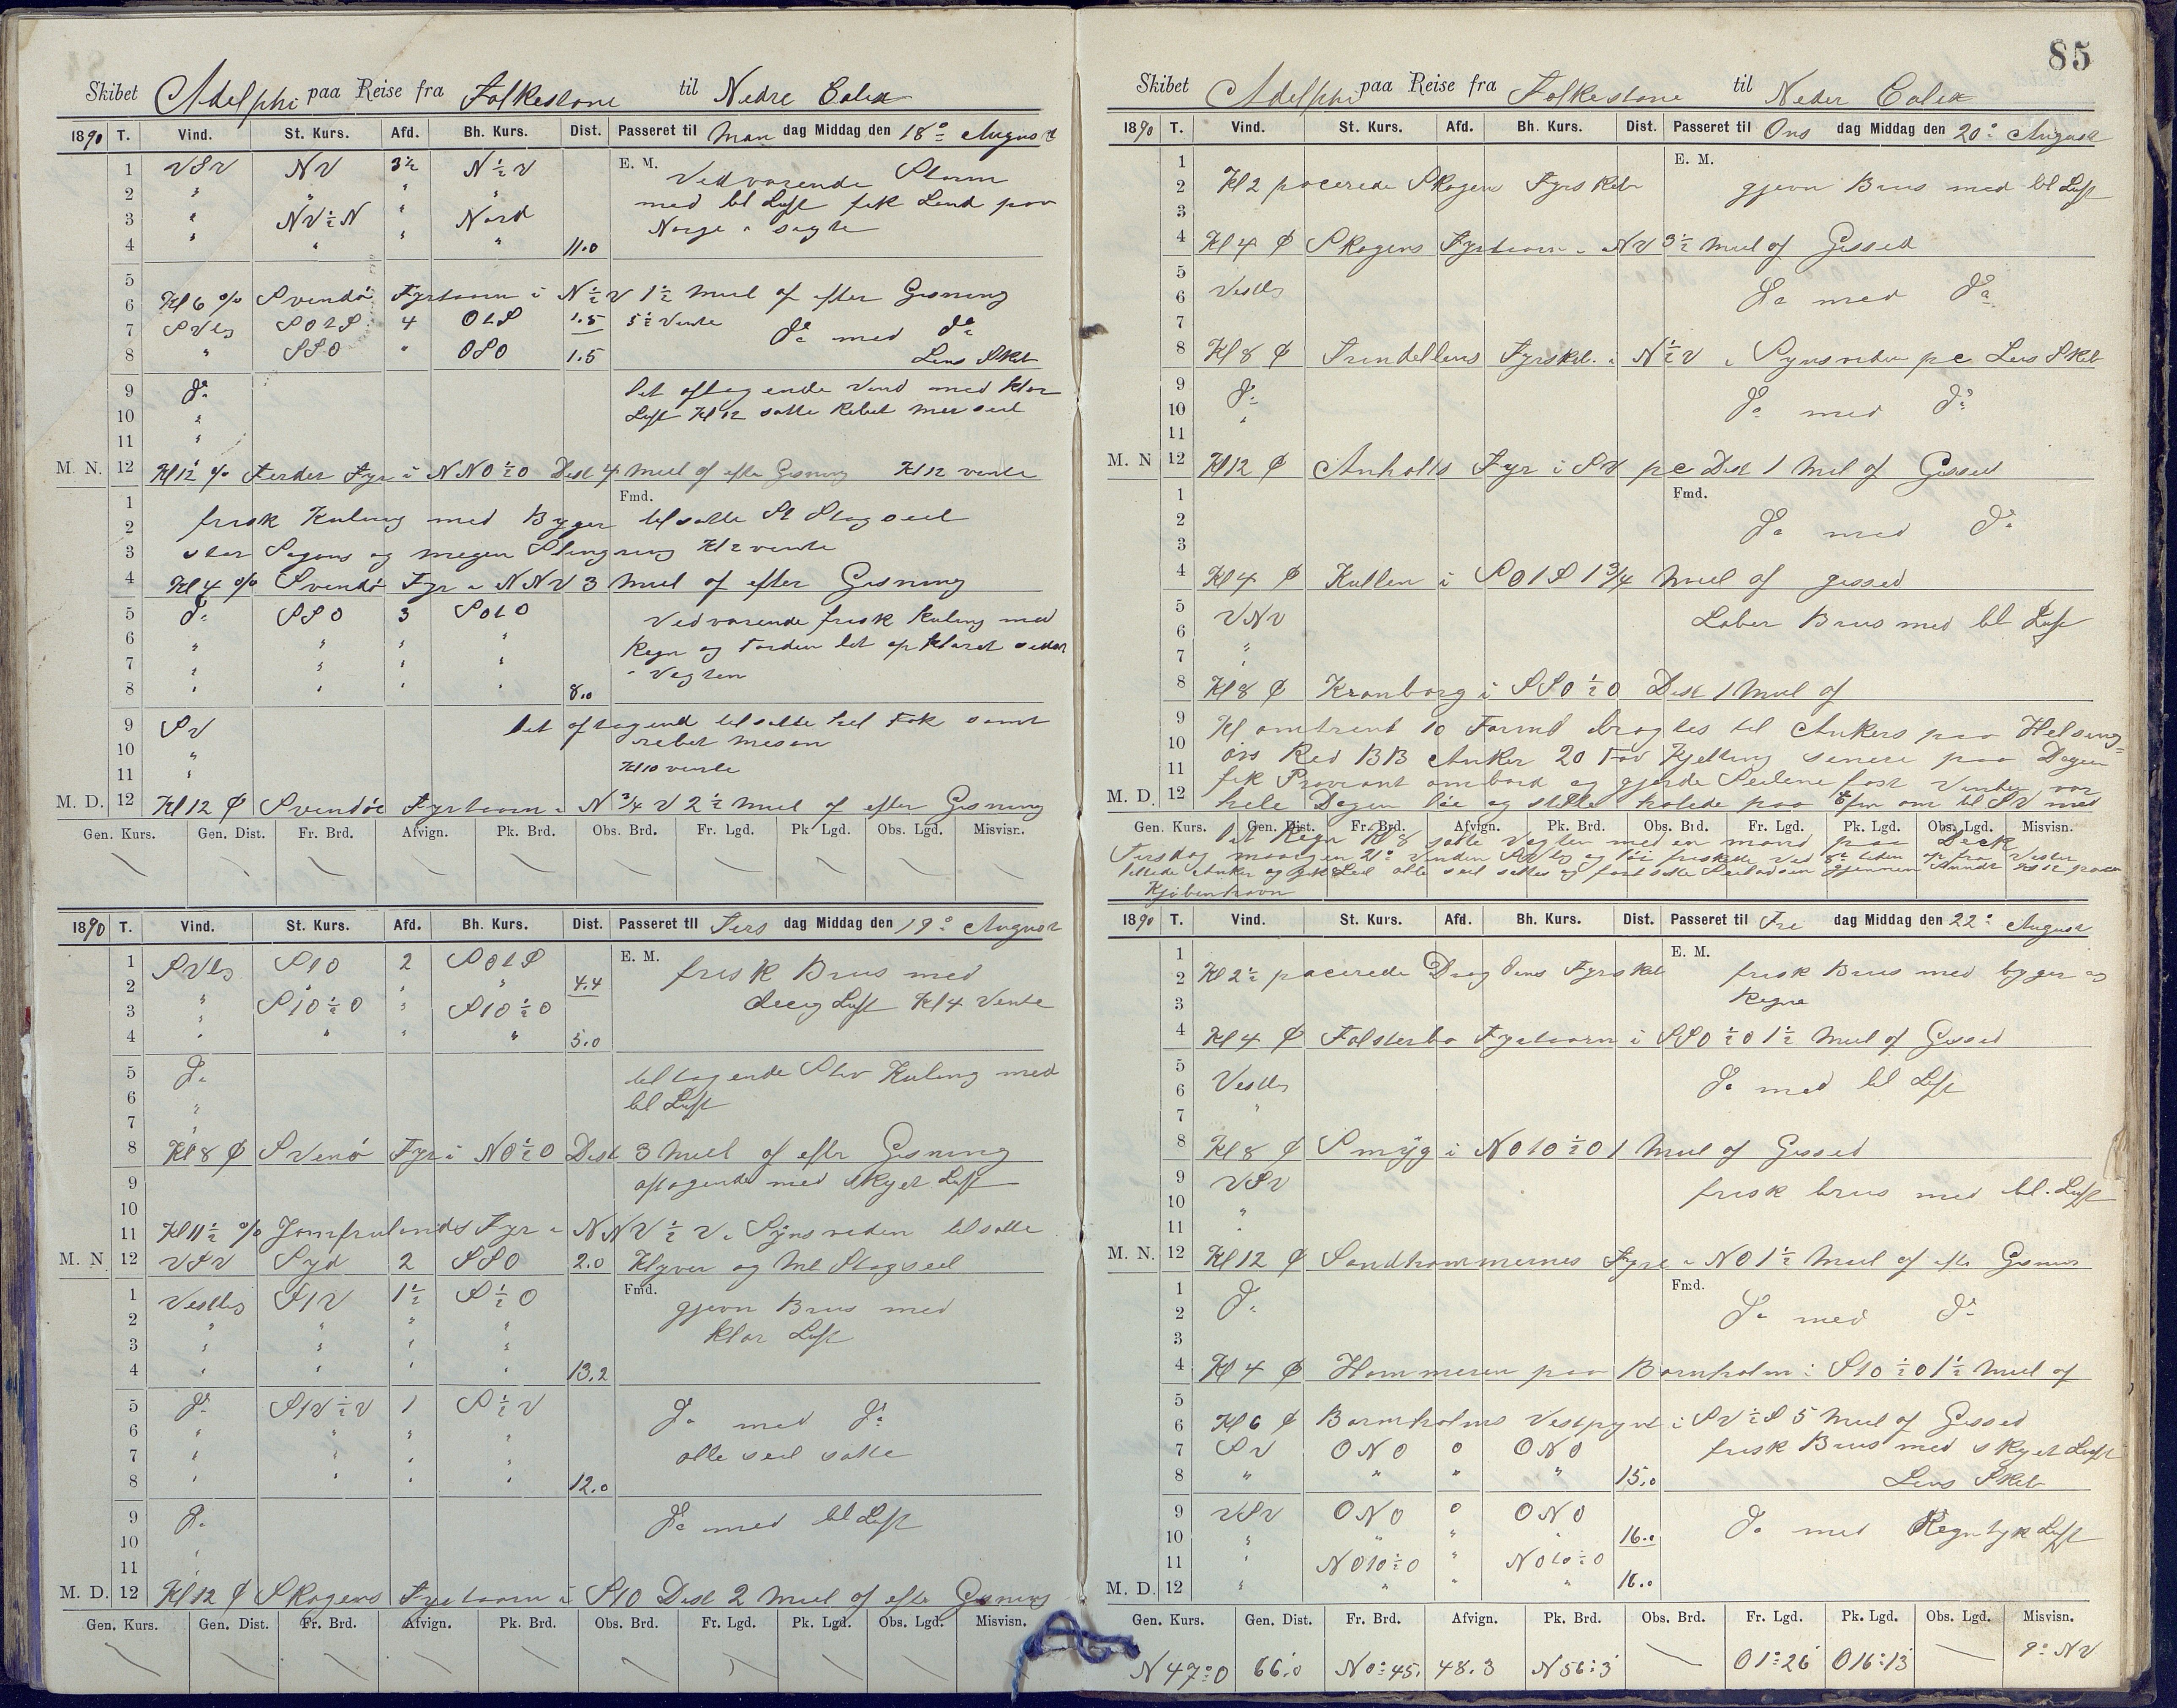 Skibet Adelphi paa Reise fra Folkestone til Nedre Calix
1890 T. Vind. St. Kurs. Afd. Bh. Kurs. Dist. Passeret til Man dag Middag den 18de August
E. M.
1 VSV NV 3½ N½V Vedvarende Storm
2 " " " " med bl Luft fik Land paa
3 " NV½N " Nord Norge i sigte
4 " " " " 11.0
5
6 Kl 6 % Svendö Fyrtaarn i N½V 1½ Miil af efter Gisning
7 SVlg SOLS 4 OLS 1.5 5½ Vente do med do
8 " SSO " OSO 1.5 Lens Skib
9 do lit aftagende Vind med klar
10 " Luft Kl 12 satte Rebet mersseil
11 "
M. N. 12 Kl 12 % Ferder Fyr i NNO½O Dist 4 Miil af efter Gisning Kl 12 vente
Fmd.
1
2 frisk Kuling med Byger tilsatte St Stagseil
3 svær Søgang og megen Slingring Kl 2 vente
4 Kl 4 % Svendö Fyr i NNV 3 Miil af efter Gisning
5 do SSO 3 SOLO Vedvarende frisk Kuling med
6 " " " " Regn og Torden lit opklaret sidst
7 " " " " i Vagten
8 " " " " 8.0
9 SV lit aftagend tilsatte hel Fok samt
10 " rebet mesan
11 " Kl 10 vente
M. D. 12 Kl 12 ₵ Svendöe Fyrtaarn i N¾V 2½ Miil af efter Gisning
Gen. Kurs. Gen. Dist. Fr. Brd. Afvign. Pk. Brd. Obs. Brd. Fr. Lgd. Pk. Lgd. Obs. Lgd. Misvisn.
1890 T. Vind. St. Kurs. Afd. Bh. Kurs. Dist. Passeret til Tirs dag Middag den 19de August
E. M.
1 SVlg SLO 2 SOLS frisk Brus med
2 " " " " 4.4
3 " SLO½O " SLO½O deeig Luft Kl 4 Vente
4 " " " " 5.0
5 do tiltagende Stiv Kuling med
6 " bl Luft
7 "
8 Kl 8 ₵ Svenö Fyr i NO½O Dist 3 Miil af efter Gisning
9 aftagende med skyet Luft
10
11 Kl 11½ % Jomfrulands Fyr i NNV½V i Synsreden tilsatte
M. N. 12 VSV Syd 2 SSO 2.0 Klyver og Ml Stagseil
Fmd.
1 Vestlig SLV 1½ S½O gjevn Brus med
2 " " " " klar Luft
3 " " " "
4 " " " " 13.2
5 do SLV½V 1 S½V
6 " " " " do med do
7 " " " " alle seil satte
8 " " " " 12.0
9 do do med bl Luft
10
11 "
M. D. 12 Kl 12 ₵ Skagens Fyrtaarn i SLO Dist 2 Miil af efter Gisning
Gen. Kurs. Gen. Dist. Fr. Brd. Afvign. Pk. Brd. Obs. Brd. Fr. Lgd. Pk. Lgd. Obs. Lgd. Misvisn.
85
Skibet Adelphi paa Reise fra Folkestone til Neder Calix
1890 T. Vind. St. Kurs. Afd. Bh. Kurs. Dist. Passeret til Ons dag Middag den 20de August
E. M.
1
2 Kl 2 pacerede Skagens Fyrskib gjevn Brus med bl Luft
3
4 Kl 4 ₵ Skagens Fyrtaarn i NV 3½ Miil af Gisset
5
6 Vestlg do med do
7
8 Kl 8 ₵ Trindellens Fyrskib i N½V i Synsreden pc Lens Skib
9 do
10 " do med do
11
M. N 12 Kl 12 ₵ Anholts Fyr i SV pc Dist 1 Miil af Gisset
Fmd.
1
2 do med do
3
4 Kl 4 ₵ Kullen i SOLS 1¾ Miil af gisset
5
6 VNV Laber Brus med bl Luft
7 "
8 Kl 8 ₵ Kronborg i SSO½O Dist 1 Miil af
9 Kl omtrent 10 Formd bragtes til Ankers paa Helsing-
10 örs Red BB Anker 20 Fav Kjetting senere paa Dagen
11 fik Proviant ombord og gjorde Seilene fast Vinden var
M. D. 12 hele Dagen löie og stille holede paa Efm om til SV med
Gen. Kurs. Gen. Dist. Fr. Brd. Afvign. Pk. Brd. Obs. Brd. Fr. Lgd. Pk. Lgd. Obs. Lgd. Misvisn.
lit Regn Kl 8 satte Vagten med en mand paa Deck
Torsdag morgen 21de Vinden SVlg og löi friskede ved 8de tiden op fra Vesten
lettede Anker og gik Seil alle seil sattes og fortsatte Seiladsen gjennem Sundet Kl 12 paa
Kjöbenhavn
1890 T. Vind. St. Kurs. Afd. Bh. Kurs. Dist. Passeret til Fre dag Middag den 22de August
E. M.
1
2 Kl 2½ pacerede Drogdens Fyrskib frisk Brus med byger og
3 Regne
4 Kl 4 ₵ Falsterbo Fyrtaarn i SSO½O 1½ Miil af Gisset
5
6 Vestlg do med bl Luft
7 "
8 Kl 8 ₵ Smyg i NOLO½O 1 Miil af Gisset
9 VSV frisk brus med bl. Luft
10 "
11 "
M. N. 12 Kl 12 ₵ Sandhammernes Fyre i NO 1½ Miil af efter Gisning
Fmd.
1 do
2 do med do
3
4 Kl 4 ₵ Hammeren paa Bornholm i SLO½O 1½ Miil af
5
6 Kl 6 ₵ Bornholms Vestpynt i SV½S 5 Miil af Gisset
7 SV ONO 0 ONO frisk Brus med skyet Luft
8 " " " " 15.0 Lens Skib
9 VSV ONO 0 ONO
10 " " " " 16.0 do med Regntyk Luft
11 " NOLO½O " NOLO½O
M. D. 12 " " " " 16.0
Gen. Kurs. Gen. Dist. Fr. Brd. Afvign. Pk. Brd. Obs. Brd. Fr. Lgd. Pk. Lgd. Obs. Lgd. Misvisn.
N 47° O 66.0 N 0°45 48.3 N 56°3' O 1°26' O 16°13' 9° NV